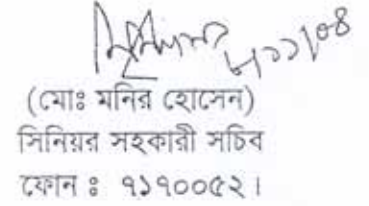 (মোঃ মনির হোসেন)
সিনিয়র সহকারী সচিব
ফোন ঃ ৭১৭০০৫২।